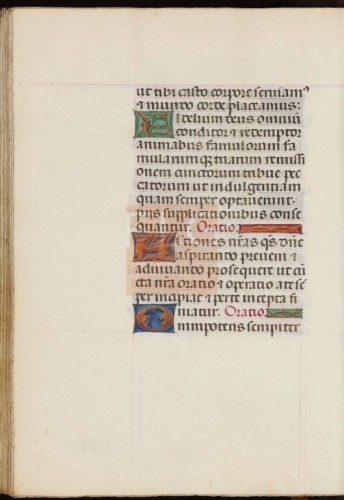 ut tibi casto corpore seruiamꝰ
& mundo corde placeamus:
Fidelium deus omniũ
conditor & redemptor
animabus famulorum fa
mularum qʒ tuarum remissi
onem cunctorum tribue pec
catorum ut indulgentiam
quam semper optauerunt.
piis supplicationibus conse
quantur. Oratio
Actiones nr̃as qs̃ dñe
aspirando preueni &
adiuuando prosequere ut cũ
cta nr̃a oratio & operatio a te sẽ
per incipiat & per te incepta fi
niatur. Oratio
Omnipotens sempiter